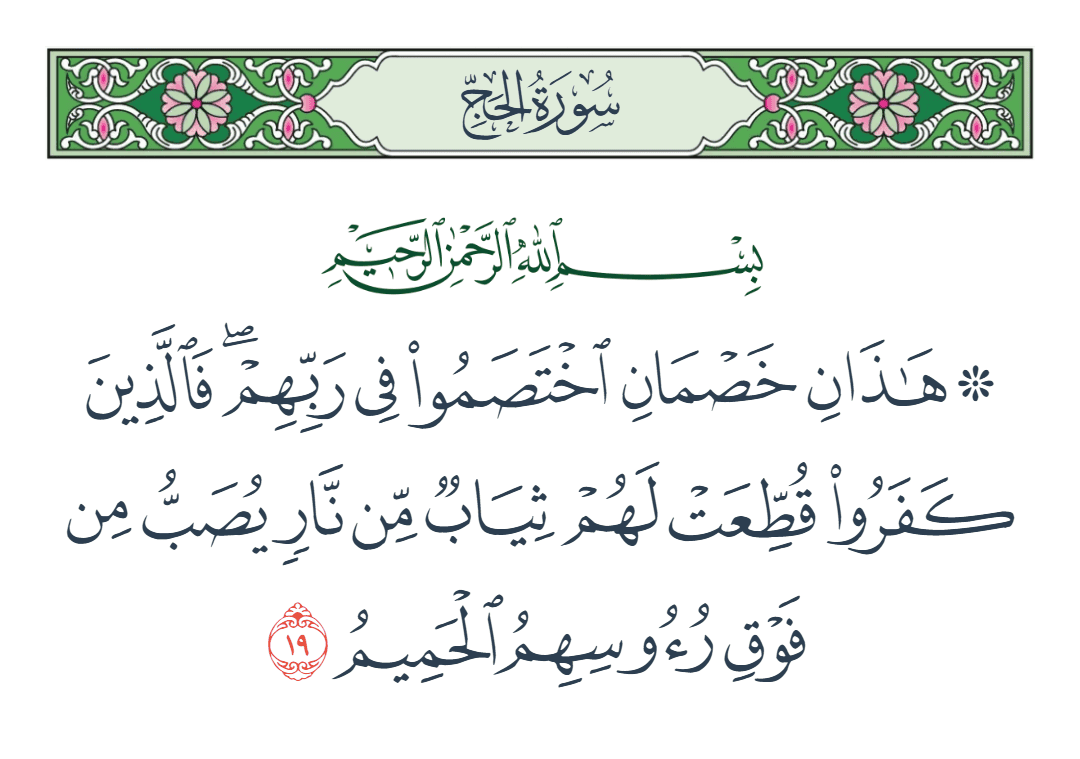 سُورَةُ الحَجِّ
بِسْمِ ٱللَّهِ ٱلرَّحْمَٰنِ ٱلرَّحِيمِ
۞ هَـٰذَانِ خَصْمَانِ ٱخْتَصَمُوا۟ فِى رَبِّهِمْ ۖ فَٱلَّذِينَ
كَفَرُوا۟ قُطِّعَتْ لَهُمْ ثِيَابٌ مِّن نَّارٍ يُصَبُّ مِن
فَوْقِ رُءُوسِهِمُ ٱلْحَمِيمُ ١٩